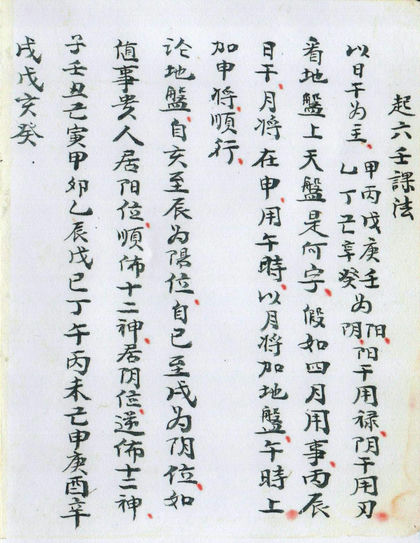 起六壬課法
以日干为主甲丙戊庚壬乙丁己辛癸为阳阴阳干用禄阴干用刃
看地盤上天盤是何字假如四月用事丙辰
日干月将在申用午時以月将加地盤午時上
加申将順行
論地盤自亥至辰为陽位自巳至戌为阴位如
值事貴人居阳位順佈十二神居阴位逆佈十二神
子壬丑己寅甲卯乙辰戊巳丁午丙未己申庚酉辛
戌戊亥癸